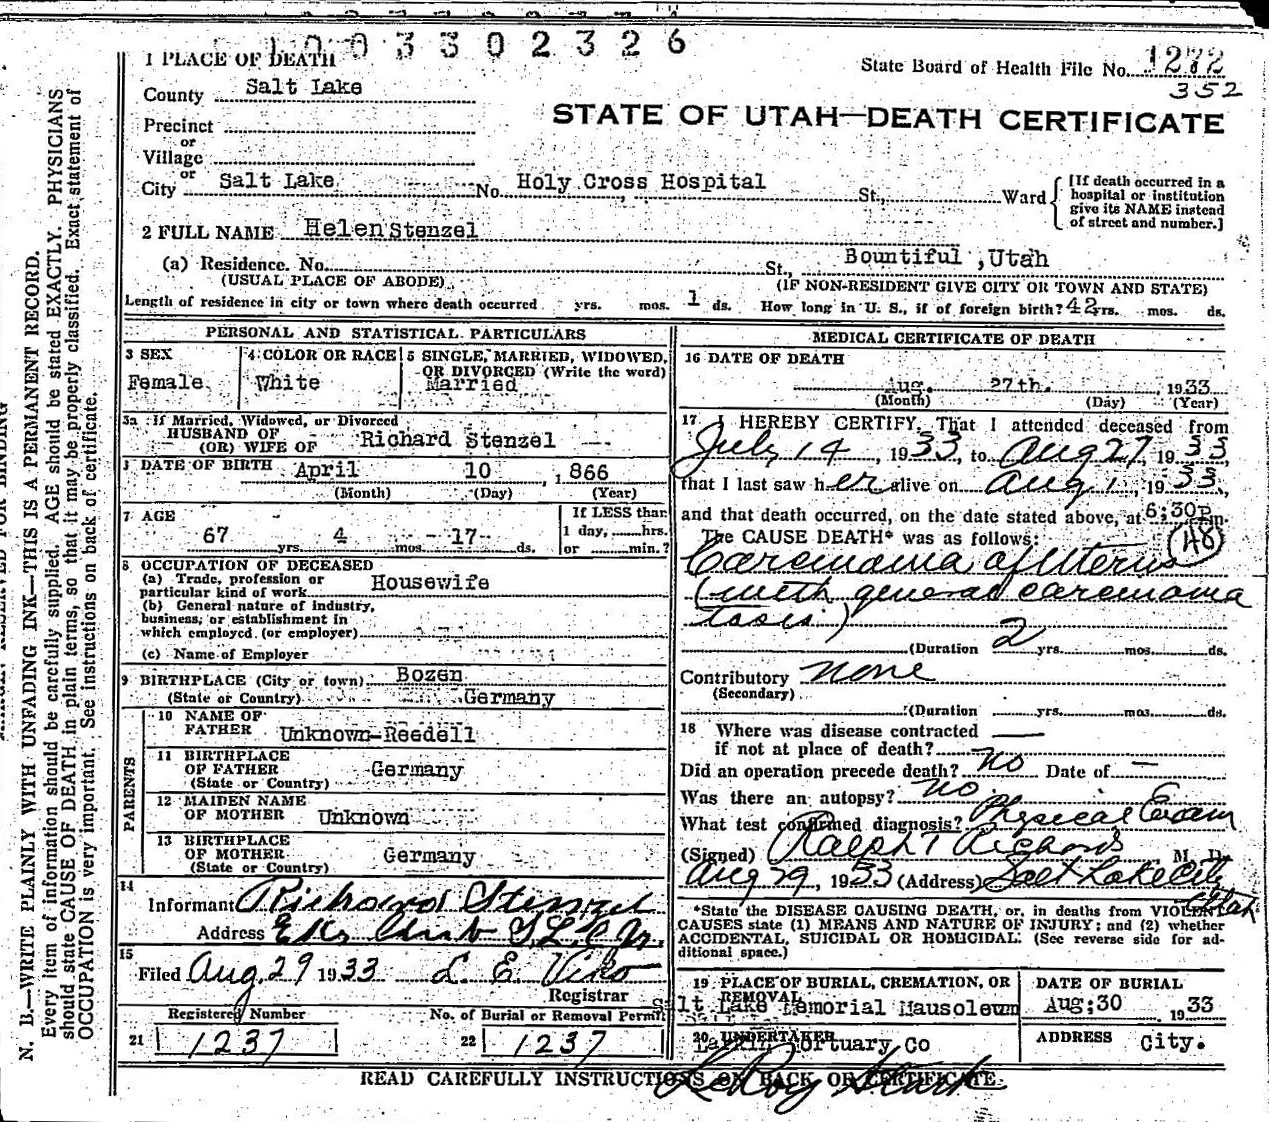 1003302326
1 PLACE OF DEATH
State Board of Health File No. 1272
352
County Salt Lake
STATE OF UTAH—DEATH CERTIFICATE
Precinct
or
Village
or
City Salt Lake No. Holy Cross Hospital St., Ward
[If death occurred in a
hospital or institution
give its NAME instead
of street and number.]
2 FULL NAME Helen Stenzel
(a) Residence. No. St., Bountiful ,Utah
(USUAL PLACE OF ABODE) (IF NON-RESIDENT GIVE CITY OR TOWN AND STATE)
Length of residence in city or town where death occurred yrs. mos. 1 ds. How long in U. S., if of foreign birth? 42 yrs. mos. ds.
PERSONAL AND STATISTICAL PARTICULARS
3 SEX
Female
4 COLOR OR RACE
White
5 SINGLE, MARRIED, WIDOWED,
OR DIVORCED (Write the word)
Married
3a If Married, Widowed, or Divorced
HUSBAND OF
(OR) WIFE OF Richard Stenzel
DATE OF BIRTH April 10 , 1866
(Month) (Day) (Year)
7 AGE
67 yrs. 4 mos. 17 ds.
If LESS than
1 day, hrs.
or min.?
8 OCCUPATION OF DECEASED
(a) Trade, profession or
particular kind of work Housewife
(b) General nature of industry,
business, or establishment in
which employed (or employer)
(c) Name of Employer
9 BIRTHPLACE (City or town) Bozen
(State or Country) Germany
PARENTS
10 NAME OF
FATHER Unknown-Reedell
11 BIRTHPLACE
OF FATHER Germany
(State or Country)
12 MAIDEN NAME
OF MOTHER Unknown
13 BIRTHPLACE
OF MOTHER Germany
(State or Country)
14
Informant Richard Stenzel
Address Elks Club S.L.C.
15
Filed Aug. 29 1933 L. E. Viko
Registrar
Registered Number
21 1237
No. of Burial or Removal Permit
22 1237
MEDICAL CERTIFICATE OF DEATH
16 DATE OF DEATH
Aug. 27th. , 1933
(Month) (Day) (Year)
17 I HEREBY CERTIFY, That I attended deceased from
July 14 , 1933, to Aug 27, 1933
that I last saw her alive on Aug , 1933.,
and that death occurred, on the date stated above, at 6:30P m.
The CAUSE DEATH* was as follows: 48
Carcinoma of Uterus
(with general carcinoma
tosis)
(Duration 2 yrs. mos. ds.
Contributory none
(Secondary)
(Duration yrs. mos. ds.
18 Where was disease contracted
if not at place of death?
Did an operation precede death? no Date of —
Was there an autopsy? no
What test confirmed diagnosis? Physical Exam
(Signed) Ralph T Richards M. D.
Aug 29, 1933 (Address) Salt Lake City
Utah
*State the DISEASE CAUSING DEATH, or, in deaths from VIOLENT
CAUSES state (1) MEANS AND NATURE OF INJURY; and (2) whether
ACCIDENTAL, SUICIDAL OR HOMICIDAL. (See reverse side for ad-
ditional space.)
19 PLACE OF BURIAL, CREMATION, OR
REMOVAL
Slt Lake Memorial Mausoleum
DATE OF BURIAL
Aug;30 1933
20 UNDERTAKER
Larkin Mortuary Co
ADDRESS City.
READ CAREFULLY INSTRUCTIONS ON BACK OF CERTIFICATE
LeRoy Stark
N. B.—WRITE PLAINLY WITH UNFADING INK—THIS IS A PERMANENT RECORD.
Every item of information should be carefully supplied. AGE should be stated EXACTLY. PHYSICIANS
should state CAUSE OF DEATH in plain terms, so that it may be properly classified. Exact statement of
OCCUPATION is very important. See instructions on back of certificate.